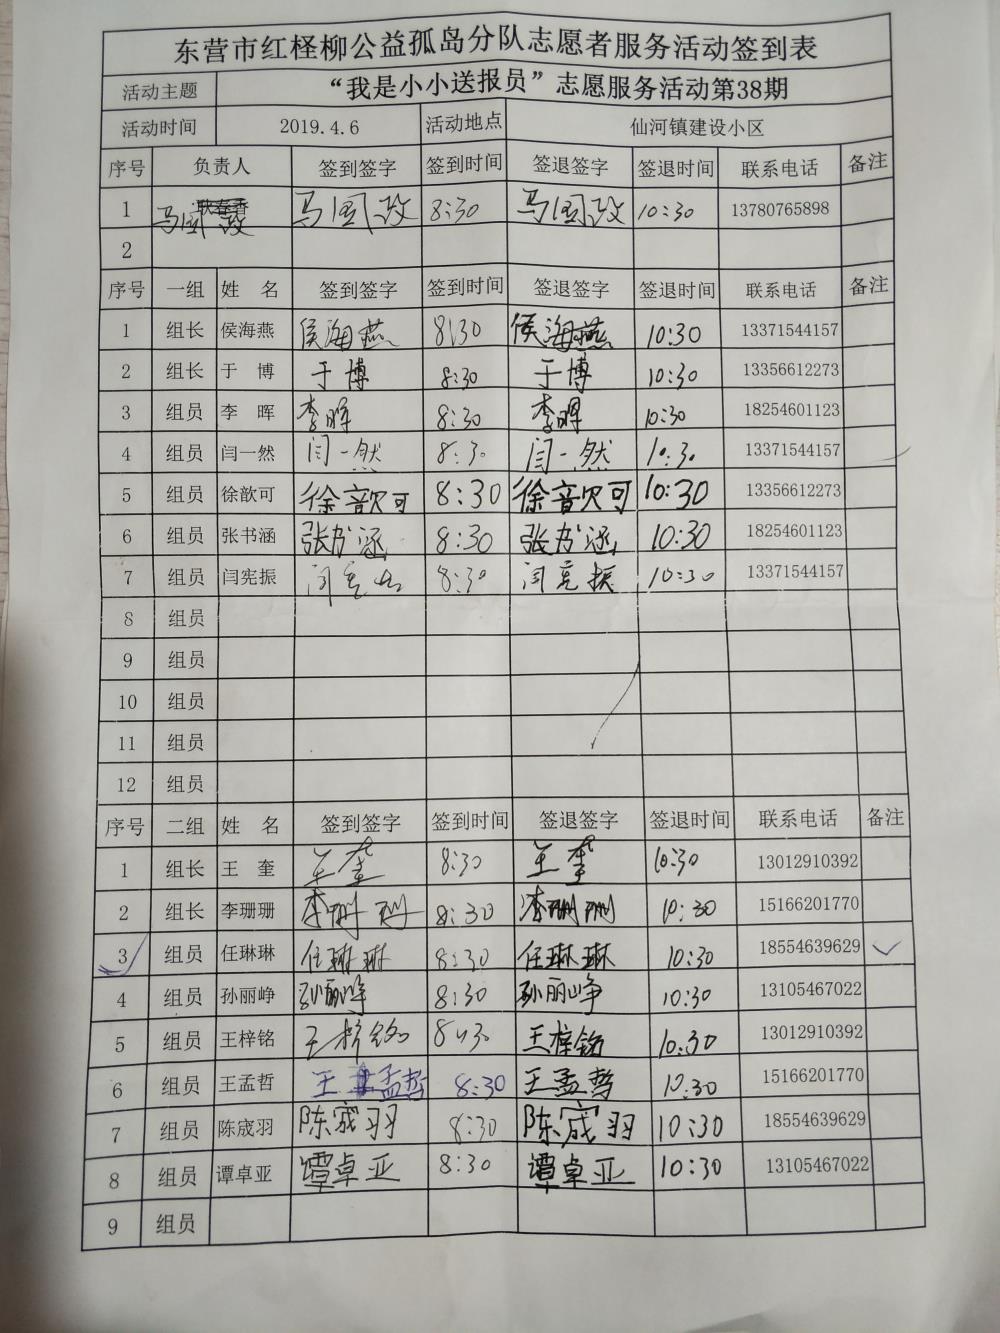 东营市红柽柳公益孤岛分队志愿者服务活动签到表
活动主题 “我是小小送报员”志愿服务活动第38期
活动时间 2019.4.6 活动地点 仙河镇建设小区
序号 负责人 签到签字 签到时间 签退签字 签退时间 联系电话 备注
1 耿春香 马国政 马国政 8:30 马国政 10:30 13780765898
2
序号 一组 姓名 签到签字 签到时间 签退签字 签退时间 联系电话 备注
1 组长 侯海燕 侯海燕 8:30 侯海燕 10:30 13371544157
2 组长 于博 于博 8:30 于博 10:30 13356612273
3 组员 李晖 李晖 8:30 李晖 10:30 18254601123
4 组员 闫一然 闫一然 8:30 闫一然 10:30 13371544157
5 组员 徐歆可 徐歆可 8:30 徐歆可 10:30 13356612273
6 组员 张书涵 张书涵 8:30 张书涵 10:30 18254601123
7 组员 闫宪振 闫宪振 8:30 闫宪振 10:30 13371544157
8 组员
9 组员
10 组员
11 组员
12 组员
序号 二组 姓名 签到签字 签到时间 签退签字 签退时间 联系电话 备注
1 组长 王奎 王奎 8:30 王奎 10:30 13012910392
2 组长 李珊珊 李珊珊 8:30 李珊珊 10:30 15166201770
3 组员 任琳琳 任琳琳 8:30 任琳琳 10:30 18554639629 ✓
4 组员 孙丽峥 孙丽峥 8:30 孙丽峥 10:30 13105467022
5 组员 王梓铭 王梓铭 8:30 王梓铭 10:30 13012910392
6 组员 王孟哲 王孟哲 8:30 王孟哲 10:30 15166201770
7 组员 陈宬羽 陈宬羽 8:30 陈宬羽 10:30 18554639629
8 组员 谭卓亚 谭卓亚 8:30 谭卓亚 10:30 13105467022
9 组员